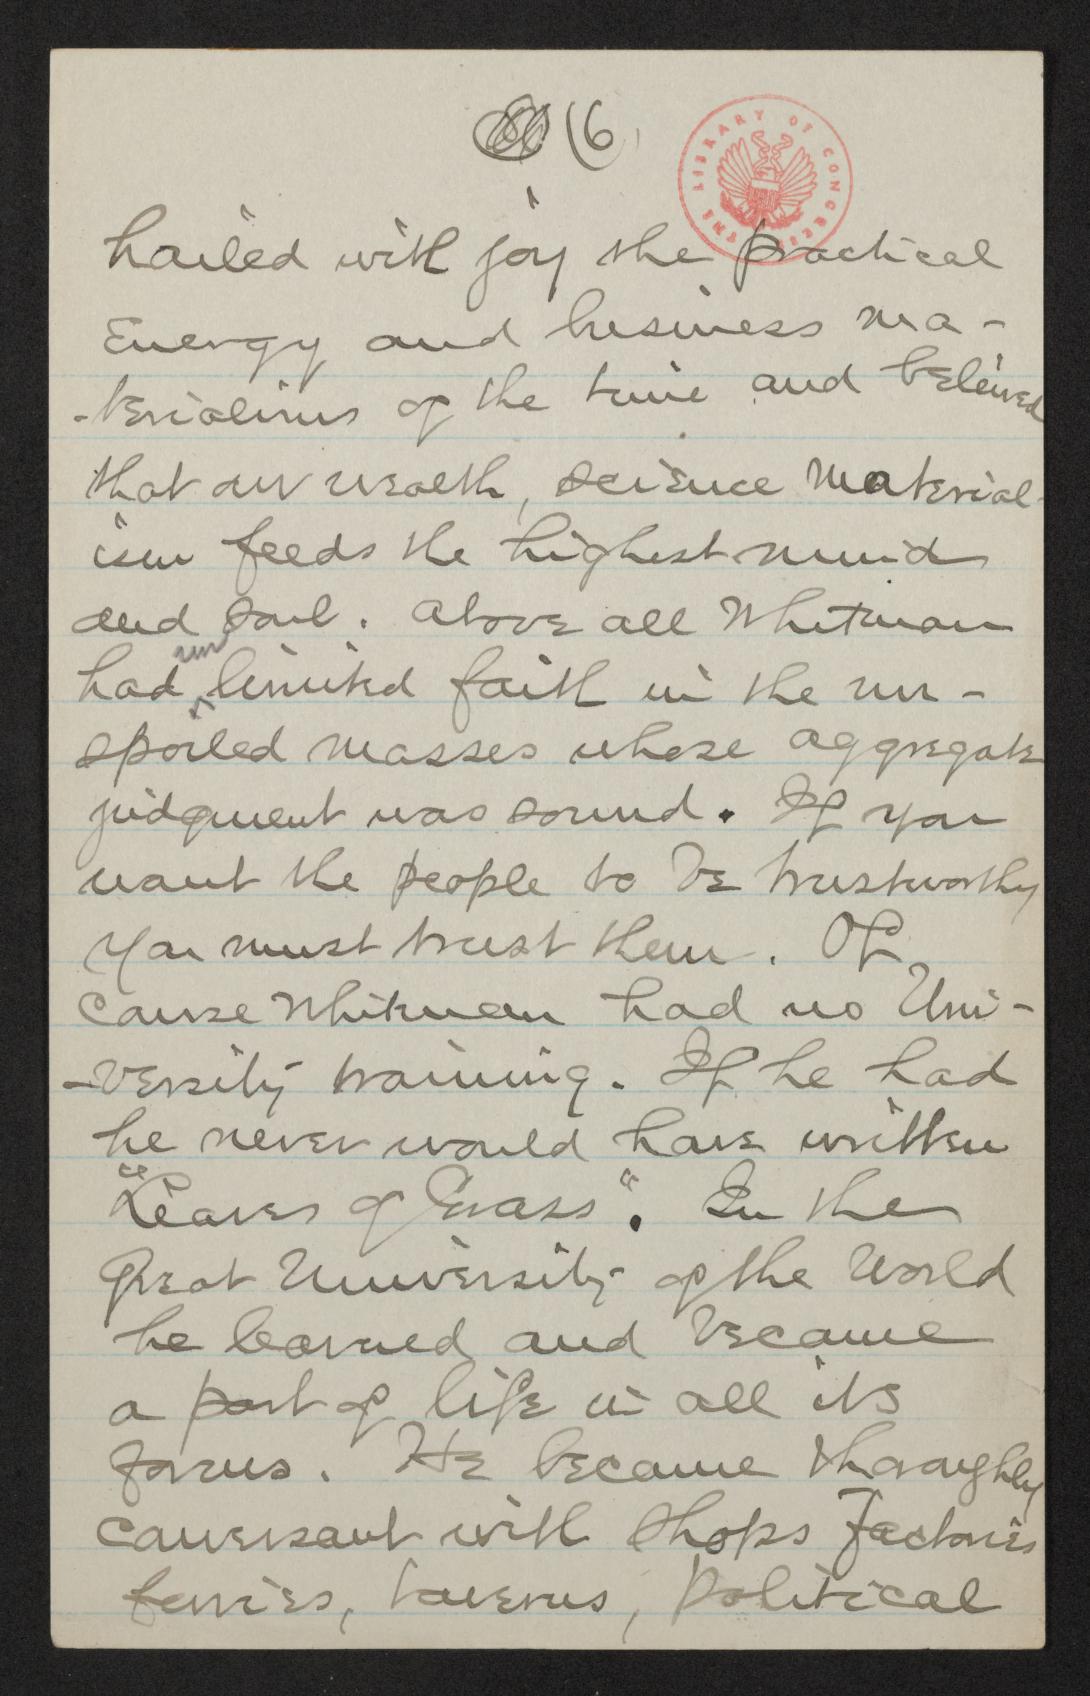 (6
THE LIBRARY OF CONGRESS
hailed with joy the practical
Energy and business ma-
-terialism of the time and believed
that our wealth, science material-
ism feeds the highest mind
and soul. Above all Whitman
had unlimited faith in the un-
spoiled masses whose aggregate
judgment was sound. If you
want the people to be trustworthy
you must trust them. Of
course Whitman had no Uni-
-versity training. If he had
he never would have written
"Leaves of Grass". In the
Great University of the World
he learned and became
a part of life in all its
forms. He became thoroughly
conversant with shops Factories
ferries, taverns, political